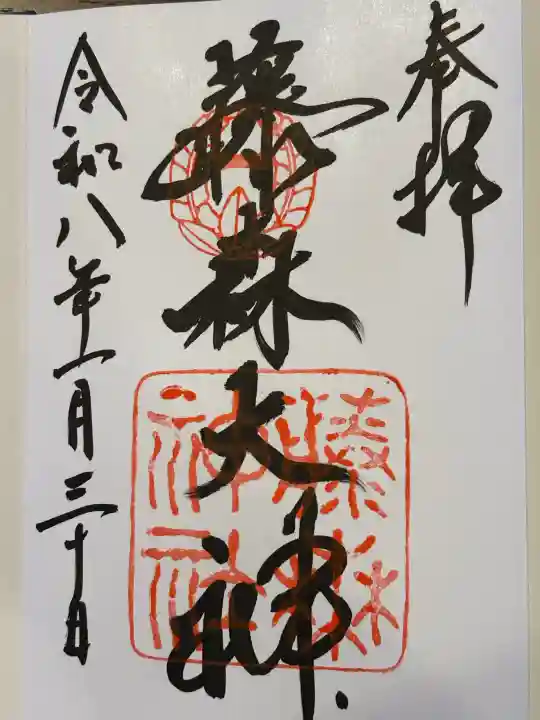 奉拝
藤森大神
藤森
神社
令和八年一月三十日